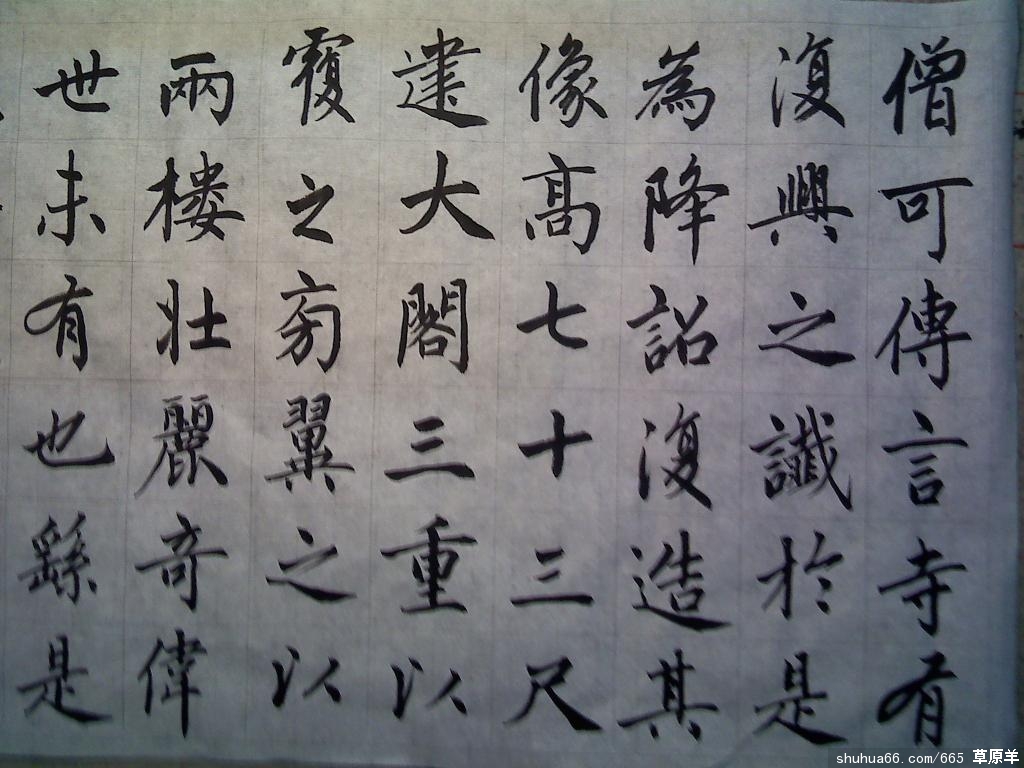 僧可傳言寺有
復興之讖於是
為降詔復造其
像高七十三尺
建大閣三重以
覆之旁翼之以
兩樓壯麗奇偉
世未有也繇是
shuhua66.com/665 草原羊